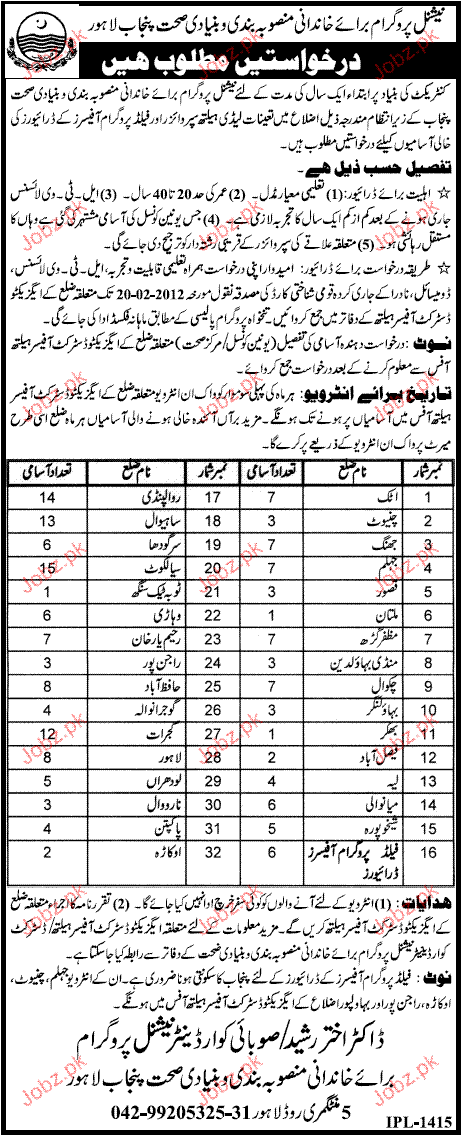 نیشنل پروگرام برائے خاندانی منصوبہ بندی و بنیادی صحت پنجاب لاہور
درخواستیں مطلوب ہیں
کنٹریکٹ کی بنیاد پر ابتداءً ایک سال کی مدت کے لئے نیشنل پروگرام برائے خاندانی منصوبہ بندی و بنیادی صحت
پنجاب کے زیر انتظام مندرجہ ذیل اضلاع میں تعینات لیڈی ہیلتھ سپروائزر اور فیلڈ پروگرام آفیسرز کے ڈرائیورز کی
خالی آسامیوں کیلئے درخواستیں مطلوب ہیں۔
تفصیل حسب ذیل ہے۔
☆ اہلیت برائے ڈرائیور: (1) تعلیمی معیار مڈل۔ (2) عمر کی حد 20 تا 40 سال۔ (3) ایل۔ٹی۔وی لائسنس
جاری ہونے کے بعد کم از کم ایک سال کا تجربہ لازمی ہے۔ (4) جس یونین کونسل کی آسامی مشتہر کی گئی ہے وہاں کا
مستقل رہائشی ہو۔ (5) متعلقہ علاقے کی سپروائزر کے قریبی رشتہ دار کو ترجیح دی جائے گی۔
☆ طریقہ درخواست برائے ڈرائیور: امیدوار اپنی درخواست ہمراہ تعلیمی قابلیت و تجربہ، ایل۔ٹی۔وی لائسنس،
ڈومیسائل، نادرا کے جاری کردہ قومی شناختی کارڈ کی مصدقہ نقول مورخہ 20-02-2012 تک متعلقہ ضلع کے ایگزیکٹو
ڈسٹرکٹ آفیسر ہیلتھ کے دفاتر میں جمع کرائیں۔ تنخواہ پروگرام پالیسی کے مطابق ماہانہ فکسڈ ادا کی جائے گی۔
نوٹ: درخواست دہندہ آسامی کی تفصیل (یونین کونسل/مرکز صحت) متعلقہ ضلع کے ایگزیکٹو ڈسٹرکٹ آفیسر ہیلتھ
آفس سے معلوم کرنے کے بعد درخواست جمع کروائے۔
تاریخ برائے انٹرویو: ہر ماہ کی پہلی سوموار کو واک ان انٹرویو متعلقہ ضلع کے ایگزیکٹو ڈسٹرکٹ آفیسر
ہیلتھ آفس میں آسامیاں پر ہونے تک ہونگے۔ مزید برآں آئندہ خالی ہونے والی آسامیاں ہر ماہ ضلع اسی طرح
میرٹ پر واک ان انٹرویو کے ذریعے پر کرے گا۔
نمبر شمار نام ضلع تعداد آسامی نمبر شمار نام ضلع تعداد آسامی
1 اٹک 7 17 راولپنڈی 14
2 چنیوٹ 3 18 ساہیوال 13
3 جھنگ 7 19 سرگودھا 6
4 جہلم 7 20 سیالکوٹ 15
5 قصور 3 21 ٹوبہ ٹیک سنگھ 1
6 ملتان 1 22 وہاڑی 6
7 مظفر گڑھ 7 23 رحیم یار خان 7
8 منڈی بہاؤالدین 3 24 راجن پور 3
9 چکوال 7 25 حافظ آباد 8
10 بہاولنگر 3 26 گوجرانوالہ 4
11 بھکر 1 27 گجرات 12
12 فیصل آباد 2 28 لاہور 8
13 لیہ 4 29 لودھراں 5
14 میانوالی 6 30 نارووال 3
15 شیخوپورہ 5 31 پاکپتن 4
16 فیلڈ پروگرام آفیسرز ڈرائیورز 6 32 اوکاڑہ 2
ہدایات: (1) انٹرویو کے لئے آنے والوں کو کوئی سفر خرچ ادا نہیں کیا جائے گا۔ (2) تقرر نامہ کا اجراء متعلقہ ضلع
کے ایگزیکٹو ڈسٹرکٹ آفیسر ہیلتھ کریں گے۔ مزید معلومات کے لئے متعلقہ ایگزیکٹو ڈسٹرکٹ آفیسر ہیلتھ/ڈسٹرکٹ
کوآرڈینیٹر نیشنل پروگرام برائے خاندانی منصوبہ بندی و بنیادی صحت کے دفاتر سے رابطہ کیا جاسکتا ہے۔
نوٹ: فیلڈ پروگرام آفیسرز کے ڈرائیورز کے لئے پنجاب کا سکونتی ہونا ضروری ہے۔ ان کے انٹرویو جہلم، چنیوٹ،
اوکاڑہ، راجن پور اور بہاولپور اضلاع کے ایگزیکٹو ڈسٹرکٹ آفیسر ہیلتھ آفس میں ہونگے۔
ڈاکٹر اختر رشید/صوبائی کوآرڈینیٹر نیشنل پروگرام
برائے خاندانی منصوبہ بندی و بنیادی صحت پنجاب لاہور
5 منٹگمری روڈ لاہور 042-99205325-31
IPL-1415
Jobz.pk